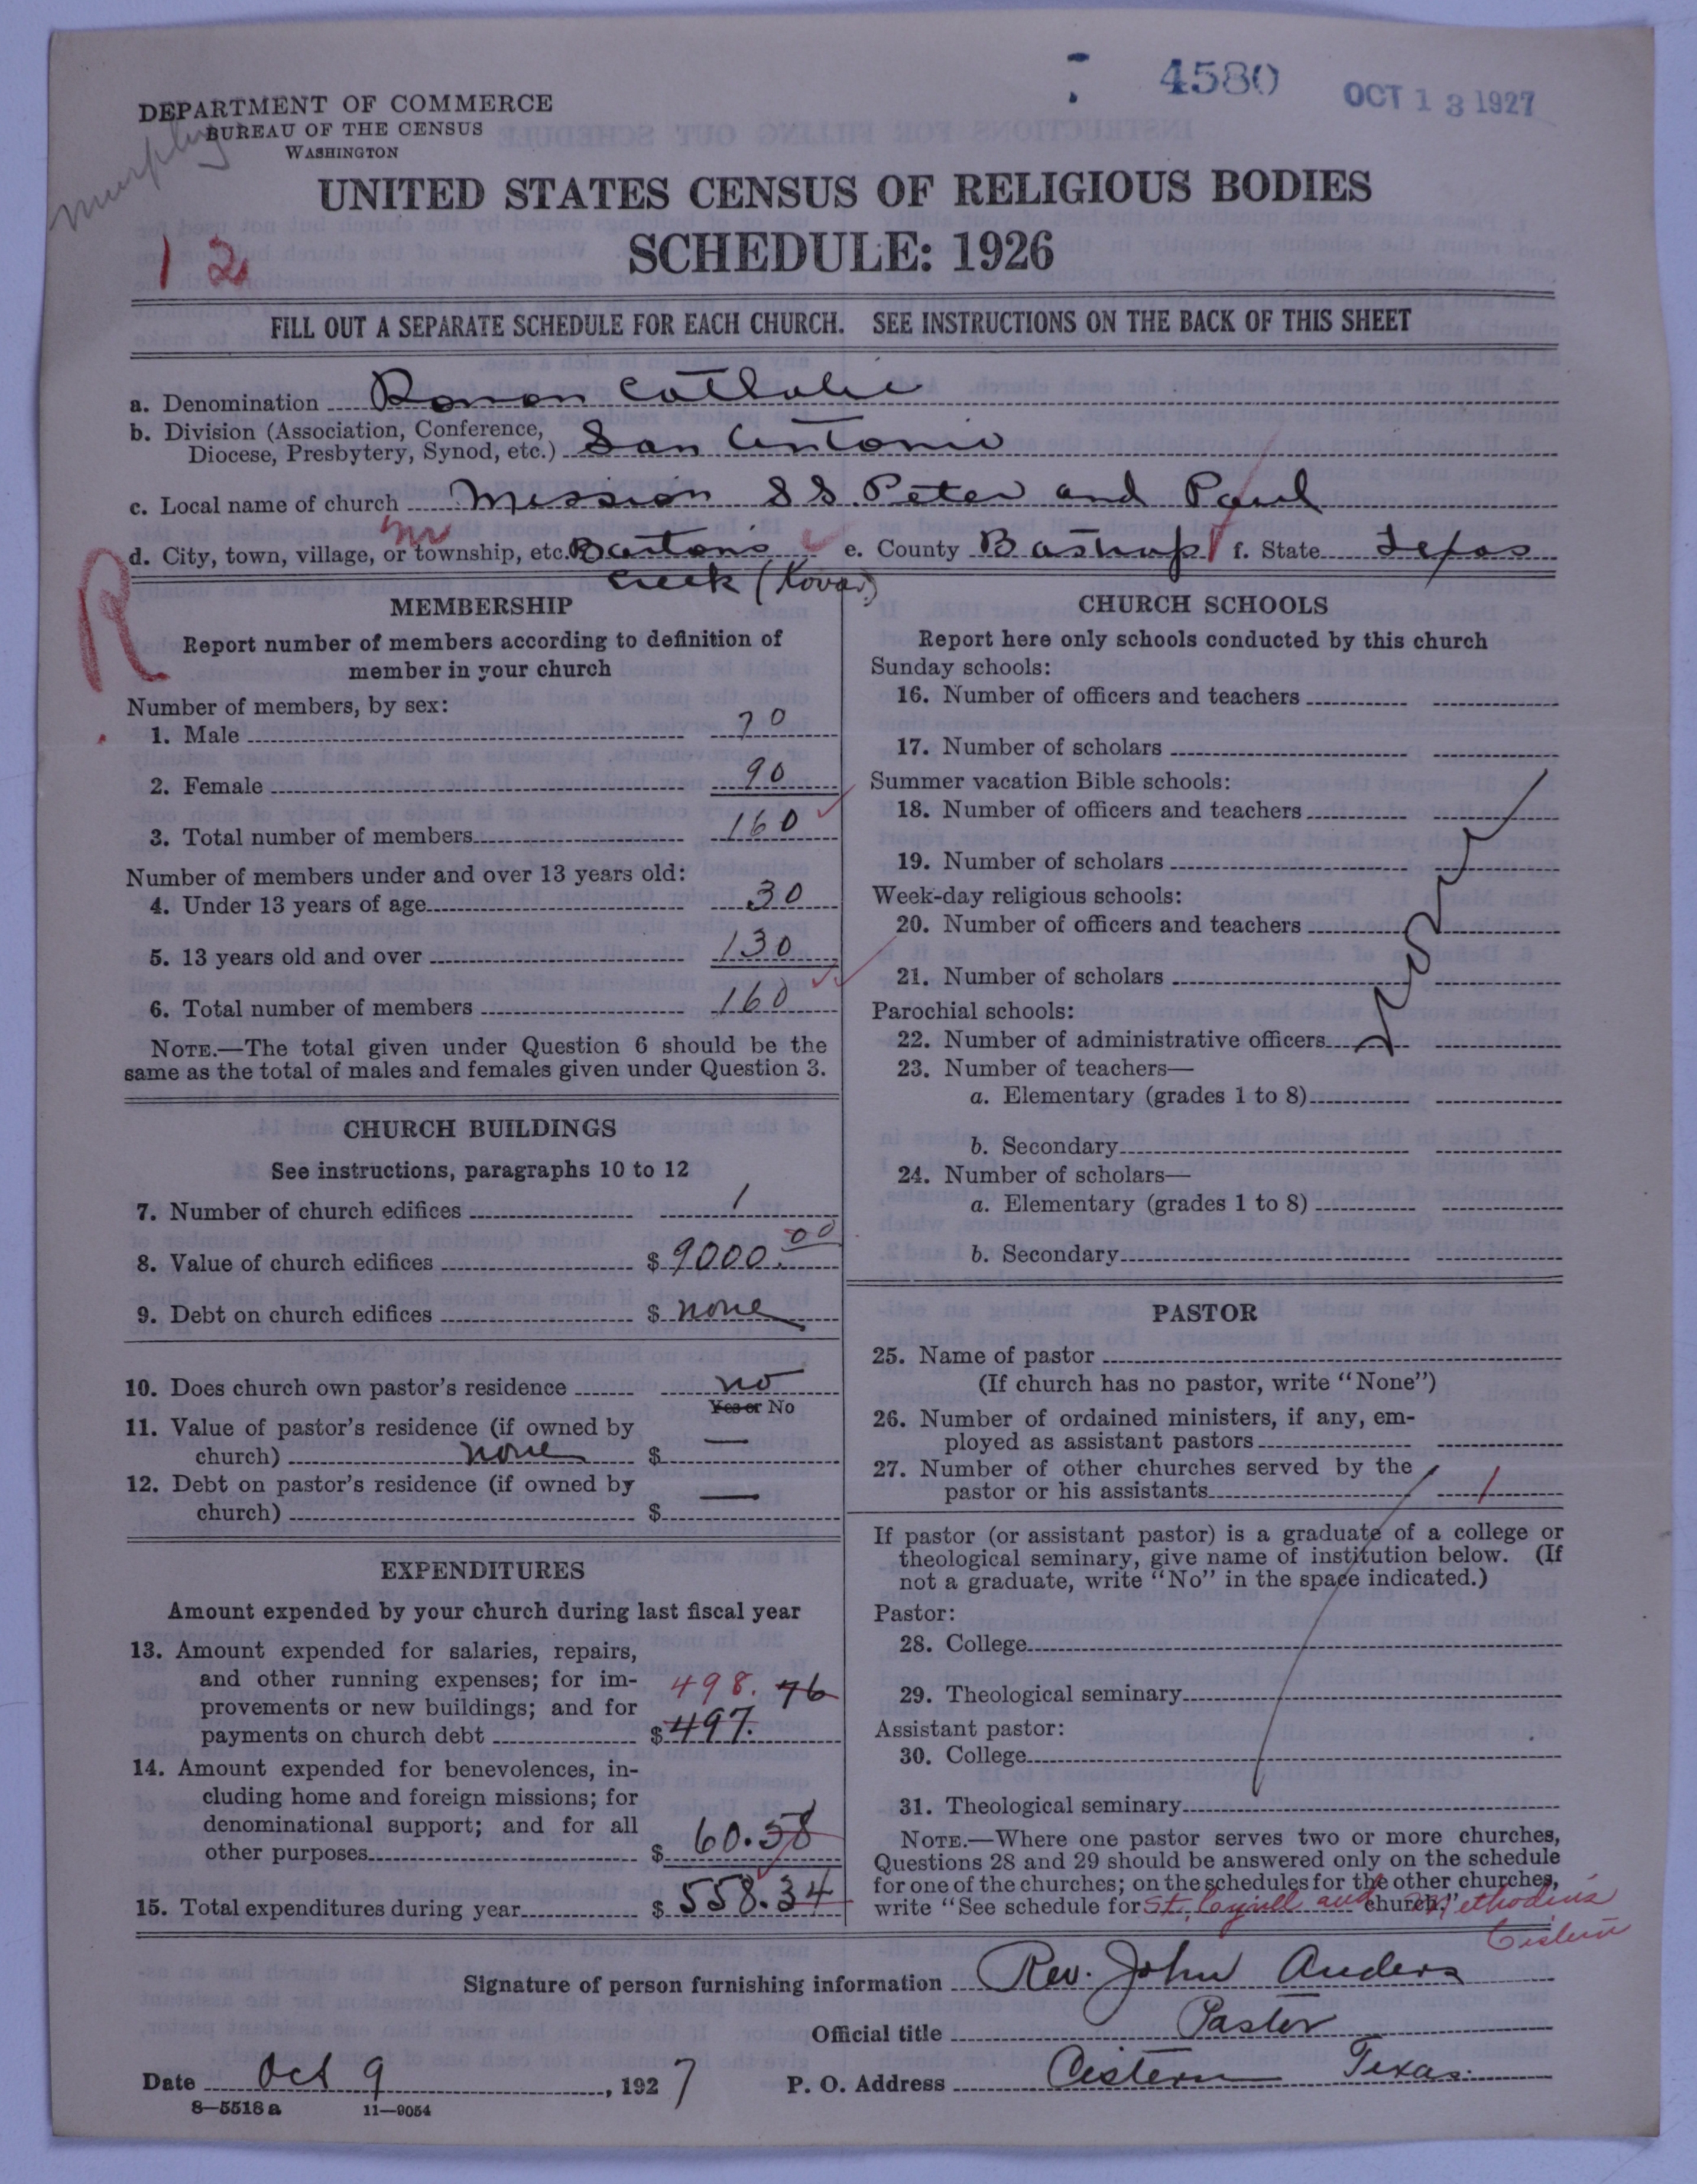 4580
OCT 13 1927
DEPARTMENT OF COMMERCE
BUREAU OF THE CENSUS
WASHINGTON
Murphy
UNITED STATES CENSUS OF RELIGIOUS BODIES
SCHEDULE: 1926
12
FILL OUT A SEPARATE SCHEDULE FOR EACH CHURCH. SEE INSTRUCTIONS ON THE BACK OF THIS SHEET
a. Denomination Roman Catholic
b. Division (Association, Conference,
Diocese, Presbytery, Synod, etc.) San Antonio
c. Local name of church Mission SS. Peter and Paul
d. City, town, village, or township, etc. Bartons e. County Bastrop f. State Texas
Creek (Kovar)
R
MEMBERSHIP
Report number of members according to definition of
member in your church
Number of members, by sex:
1. Male 70
2. Female 90
3. Total number of members 160
Number of members under and over 13 years old:
4. Under 13 years of age 30
5. 13 years old and over 130
6. Total number of members 160
NOTE.—The total given under Question 6 should be the
same as the total of males and females given under Question 3.
CHURCH BUILDINGS
See instructions, paragraphs 10 to 12
7. Number of church edifices 1
8. Value of church edifices $ 9000.00
9. Debt on church edifices $ none
10. Does church own pastor's residence no
Yes or No
11. Value of pastor's residence (if owned by
church) none $ —
12. Debt on pastor's residence (if owned by
church) $ —
EXPENDITURES
Amount expended by your church during last fiscal year
13. Amount expended for salaries, repairs,
and other running expenses; for im-
498. 76
provements or new buildings; and for
payments on church debt $ 497.
14. Amount expended for benevolences, in-
cluding home and foreign missions; for
denominational support; and for all
other purposes $ 60.58
15. Total expenditures during year $ 558.34
CHURCH SCHOOLS
Report here only schools conducted by this church
Sunday schools:
16. Number of officers and teachers
17. Number of scholars
Summer vacation Bible schools:
18. Number of officers and teachers
19. Number of scholars
Week-day religious schools:
20. Number of officers and teachers
21. Number of scholars
none
Parochial schools:
22. Number of administrative officers
23. Number of teachers—
a. Elementary (grades 1 to 8)
b. Secondary
24. Number of scholars—
a. Elementary (grades 1 to 8)
b. Secondary
PASTOR
25. Name of pastor
(If church has no pastor, write "None")
26. Number of ordained ministers, if any, em-
ployed as assistant pastors
27. Number of other churches served by the
pastor or his assistants 1
If pastor (or assistant pastor) is a graduate of a college or
theological seminary, give name of institution below. (If
not a graduate, write "No" in the space indicated.)
Pastor:
28. College
29. Theological seminary
Assistant pastor:
30. College
31. Theological seminary
NOTE.—Where one pastor serves two or more churches,
Questions 28 and 29 should be answered only on the schedule
for one of the churches; on the schedules for the other churches,
write "See schedule for St. Cyrill and Methodius church."
Cistern
Signature of person furnishing information Rev. John Anders
Official title Pastor
Date Oct 9, 1927 P. O. Address Cistern Texas.
8—5518a 11—9054